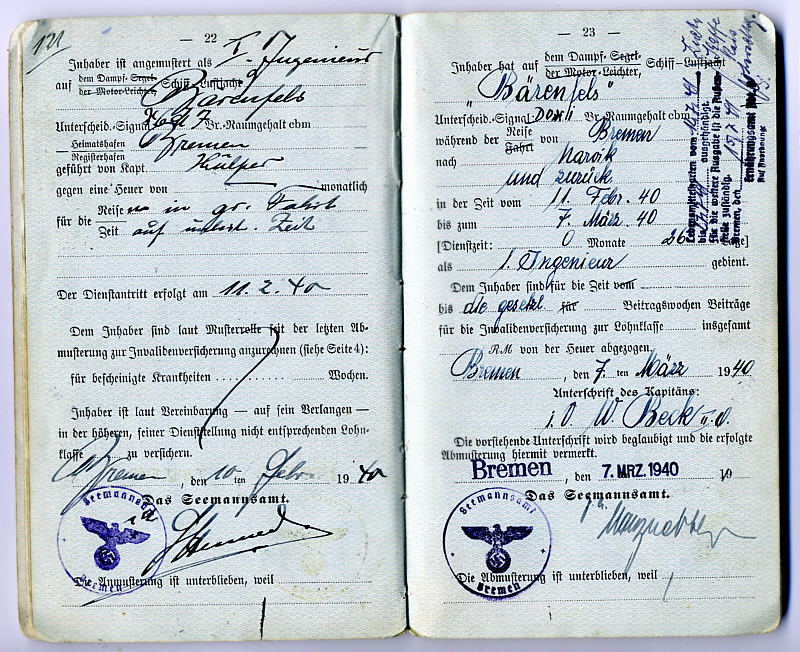 121
— 22 —
Inhaber ist angemustert als I. Ingenieur
auf dem Dampf- Segel-
der Motor-Leichter, Schiff-Lustjacht
Bärenfels
Unterscheid.-Signal Br.-Raumgehalt cbm
Heimatshafen
Registerhafen Bremen
geführt von Kapt. Hülper
gegen eine Heuer von — monatlich
für die Reise
Zeit in gr. Fahrt
auf unbest. Zeit
Der Dienstantritt erfolgt am 11. 2. 40
Dem Inhaber sind laut Musterrolle seit der letzten Ab-
musterung zur Invalidenversicherung anzurechnen (siehe Seite 4):
für bescheinigte Krankheiten Wochen.
Inhaber ist laut Vereinbarung — auf sein Verlangen —
in der höheren, seiner Dienststellung nicht entsprechenden Lohn-
klasse zu versichern.
Bremen, den 10 ten Febr. 1940
Das Seemannsamt.
Seemannsamt
Bremen
Die Anmusterung ist unterblieben, weil
— 23 —
Inhaber hat auf dem Dampf- Segel-
der Motor-Leichter, Schiff-Lustjacht
"Bärenfels"
Unterscheid.-Signal Br.-Raumgehalt cbm
während der Reise
Fahrt von Bremen
nach Narvik
und zurück
in der Zeit vom 11. Febr. 40
bis zum 7. März. 40
[Dienstzeit: 0 Monate 26 Tage]
als 1. Ingenieur gedient.
Dem Inhaber sind für die Zeit vom
bis die gesetzl für Beitragswochen Beiträge
für die Invalidenversicherung zur Lohnklasse insgesamt
RM von der Heuer abgezogen.
Bremen, den 7. ten März 1940
Unterschrift des Kapitäns:
i. V. W. Beck
Die vorstehende Unterschrift wird beglaubigt und die erfolgte
Abmusterung hiermit vermerkt.
Bremen, den 7. MRZ. 1940 19
Das Seemannsamt.
Seemannsamt
Bremen
Die Abmusterung ist unterblieben, weil
Lebensmittelkarten vom
bis ausgehändigt.
für die weitere Ausgabe ist die Außen-
stelle zuständig.
Bremen, den
Ernährungsamt
Auf Anordnung: